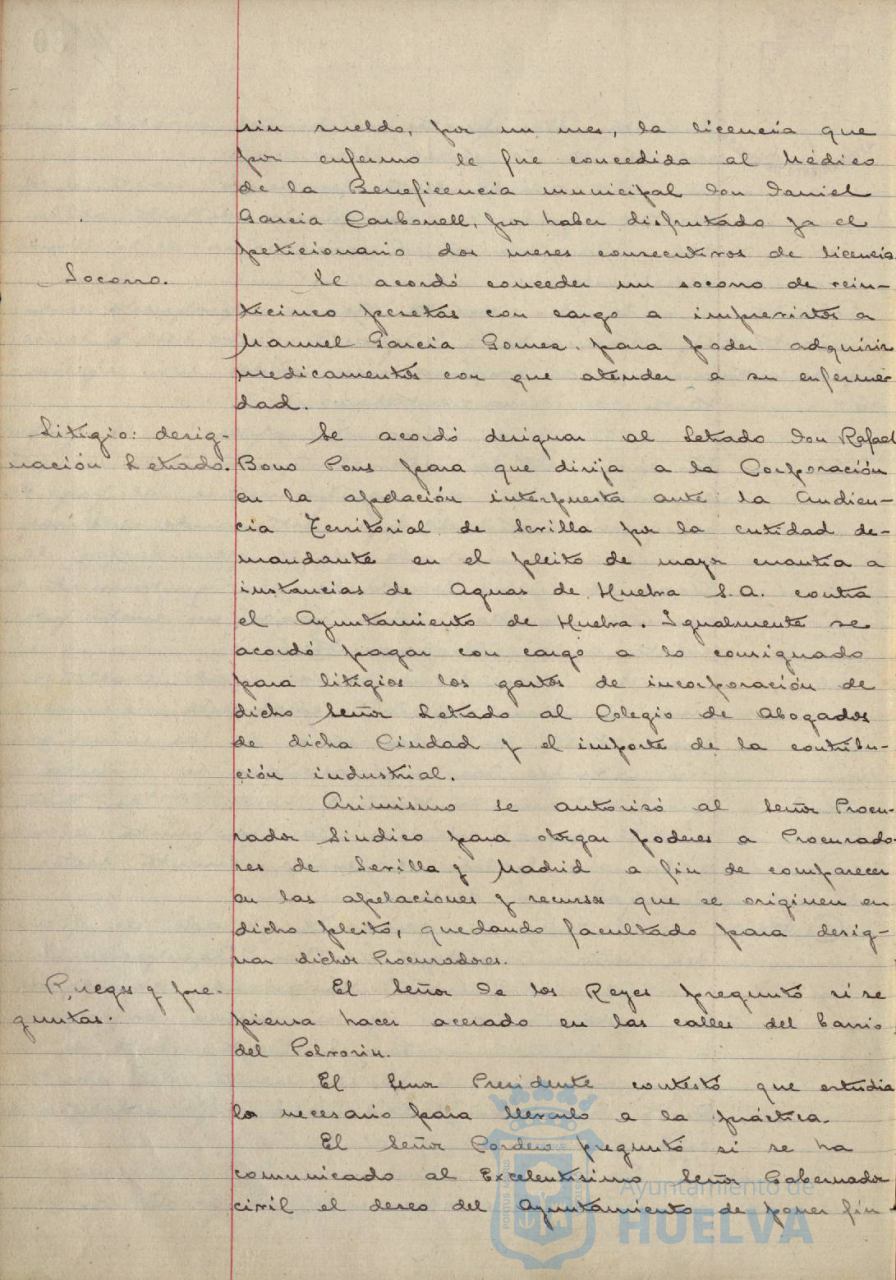 sin sueldo, por un mes, la licencia que
por enfermo le fue concedida al Médico
de la Beneficencia municipal Don Daniel
Garcia Carbonell, por haber disfrutado ya el
peticionario dos meses consecutivos de licencia
Socorro.
Se acordó conceder un socorro de vein-
ticinco pesetas con cargo a imprevistos a
Manuel Garcia Gomez. para poder adquirir
medicamentos con que atender a su enferme
dad.
Litigio: desig-
nación Letrado.
Se acordó designar al Letrado Don Rafael
Bono Pons para que dirija a la Corporación
en la apelación interpuesta ante la Audien-
cia Territorial de Sevilla por la entidad de-
mandante en el pleito de mayor cuantia a
instancias de Aguas de Huelva S.A. contra
el Ayuntamiento de Huelva. Igualmente se
acordó pagar con cargo a lo consignado
para litigios los gastos de incorporación de
dicho Señor Letrado al Colegio de Abogados
de dicha Ciudad y el importe de la contribu-
ción industrial.
Asimismo se autorizó al Señor Procu-
rador Sindico para otorgar poderes a Procurado-
res de Sevilla y Madrid a fin de comparecer
en las apelaciones y recursos que se originen en
dicho pleito, quedando facultado para desig-
nar dichos Procuradores.
Ruegos y pre-
guntas.
El Señor De los Reyes preguntó si se
piensa hacer acerado en las calles del barrio
del Polvorin.
El Señor Presidente contestó que estudia
lo necesario para llevarlo a la práctica.
El Señor Cordero preguntó si se ha
comunicado al Excelentisimo Señor Gobernador
civil el deseo del Ayuntamiento de poner fin
Ayuntamiento de
HUELVA